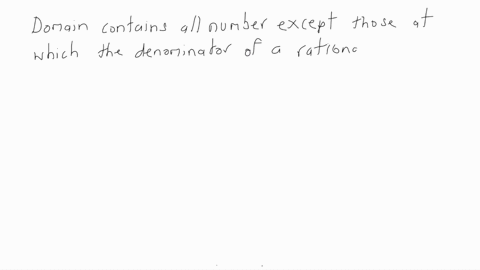 Domain contains all number except those at
which the denominator of a rationa